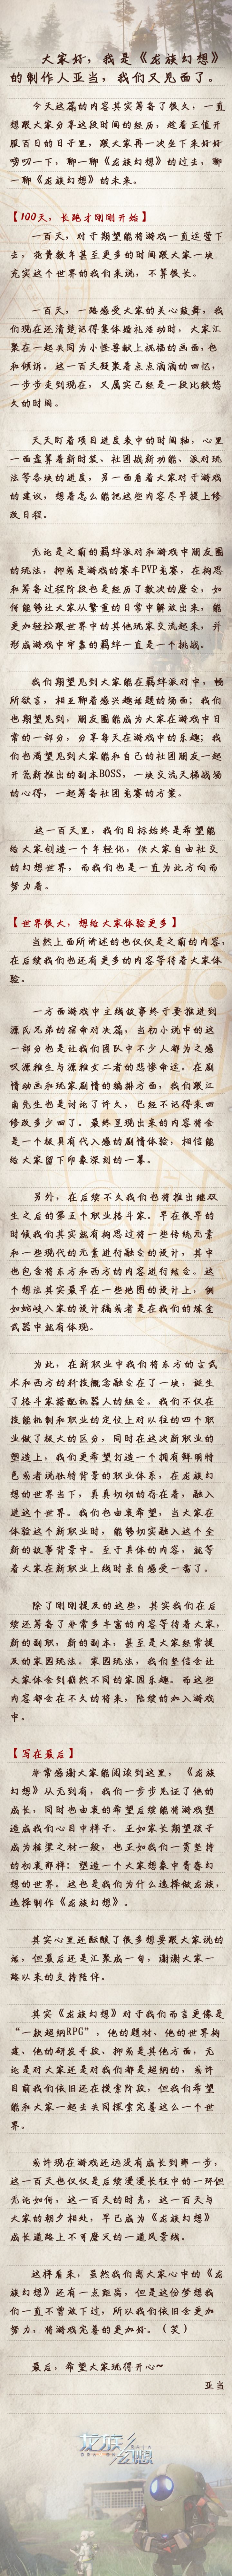 大家好，我是《龙族幻想》
的制作人亚当，我们又见面了。
今天这篇的内容其实筹备了很久，一直
想跟大家分享这段时间的经历，趁着正值开
服百日的日子里，跟大家再一次坐下来好好
唠叨一下，聊一聊《龙族幻想》的过去，聊
一聊《龙族幻想》的未来。
【100天，长跑才刚刚开始】
一百天，对于期望能将游戏一直运营下
去，花费数年甚至更多的时间跟大家一块
充实这个世界的我们来说，不算很长。
一百天，一路感受大家的关心鼓舞，我
们现在还清楚记得集体婚礼活动时，大家汇
聚在一起共同为小怪兽献上祝福的画面，也
和倾诉。这一百天凝聚着点点滴滴的回忆，
一步步走到现在，又属实已经是一段比较悠
久的时间。
天天盯着项目进度表中的时间轴，心里
一面盘算着新时装、社团战新功能、派对玩
法等各块的进度，另一面看着大家对于游戏
的建议，想着怎么能把这些内容尽早提上修
改日程。
无论是之前的羁绊派对和游戏中朋友圈
的玩法，抑或是游戏的赛车PVP竞赛，在构思
和筹备过程阶段也是经历了数次的磨合，如
何能够让大家从繁重的日常中解放出来，能
更加轻松跟世界中的其他玩家交流起来，并
形成游戏中牢靠的羁绊一直是一个挑战。
我们期望见到大家能在羁绊派对中，畅
所欲言，相互聊着感兴趣话题的场面；我们
也期望见到，朋友圈能成为大家在游戏中日
常的一部分，分享每天在游戏中的乐趣；我
们也渴望见到大家能和自己的社团朋友一起
开荒新推出的副本BOSS，一块交流天梯战场
的心得，一起筹备社团竞赛的方案。
这一百天里，我们目标始终是希望能
给大家创造一个年轻化，供大家自由社交
的幻想世界，而我们也是一直为此方向而
努力着。
【世界很大，想给大家体验更多】
当然上面所讲述的也仅仅是之前的内容，
在后续我们也还有更多的内容等待着大家体
验。
一方面游戏中主线故事终于要推进到
源氏兄弟的宿命对决篇，当初小说中的这
一部分也是让我们团队中不少人都为之感
叹源稚生与源稚女二者的悲惨命运。在剧
情动画和玩家剧情的编排方面，我们跟江
南先生也是讨论了许久，已经不记得来回
修改多少回了。最终呈现出来的内容将会
是一个极具有代入感的剧情体验，相信能
给大家留下印象深刻的一幕。
另外，在后续不久我们也将推出继双
生之后的第五个职业格斗家。早在很早的
时候我们其实就有构思过将一些传统元素
和一些现代的元素进行融合的设计，其中
也包含将东方和西方的内容进行结合。这
个想法其实最早在一些地图的设计上，例
如蛇岐八家的设计稿或者是在我们的炼金
武器中就有体现。
为此，在新职业中我们将东方的古武
术和西方的科技概念融合在了一块，诞生
了格斗家搭配机器人的组合。我们不仅在
技能机制和职业的定位上对以往的四个职
业做了极大的区分，同时在这次新职业的
塑造上，我们更希望打造一个拥有鲜明特
色或者说独特背景的职业体系，在龙族幻
想的世界当下，真真切切的存在着，融入
进这个世界。我们也由衷希望，当大家在
体验这个新职业时，能够切实融入这个全
新的故事背景中。至于具体的内容，就等
着大家在新职业上线时亲自感受一番了。
除了刚刚提及的这些，其实我们在后
续还筹备了非常多丰富的内容等待着大家，
新的副职，新的副本，甚至是大家经常提
及的家园玩法。家园玩法，我们坚信会让
大家体会到截然不同的家园乐趣。而这些
内容都会在不久的将来，陆续的加入游戏
中。
【写在最后】
非常感谢大家能阅读到这里，《龙族
幻想》从无到有，我们一步步见证了他的
成长，同时也由衷的希望后续能将游戏塑
造成我们心目中样子。正如家长期望孩子
成为栋梁之材一般，也正如我们一贯坚持
的初衷那样：塑造一个大家想象中青春幻
想的世界。这也是我们为什么选择做龙族，
选择制作《龙族幻想》。
其实心里还酝酿了很多想要跟大家说的
话，但最后还是汇聚成一句，谢谢大家一
路以来的支持陪伴。
其实《龙族幻想》对于我们而言更像是
“一款超纲RPG”，他的题材、他的世界构
建、他的研发手段、抑或是其他方面，无
论是对大家还是对我们都是超纲的，或许
目前我们依旧还在摸索阶段，但我们希望
能和大家一起去共同探索完善这么一个世
界。
或许现在游戏还远没有成长到那一步，
这一百天也仅仅是后续漫漫长征中的一环但
无论如何，这一百天的时光，这一百天与
大家的朝夕相处，早已成为《龙族幻想》
成长道路上不可磨灭的一道风景线。
这样看来，虽然我们离大家心中的《龙
族幻想》还有一点距离，但是这份梦想我
们一直不曾放下过，所以我们依旧会更加
努力，将游戏完善的更加好。（笑）
最后，希望大家玩得开心~
亚当
龙族幻想